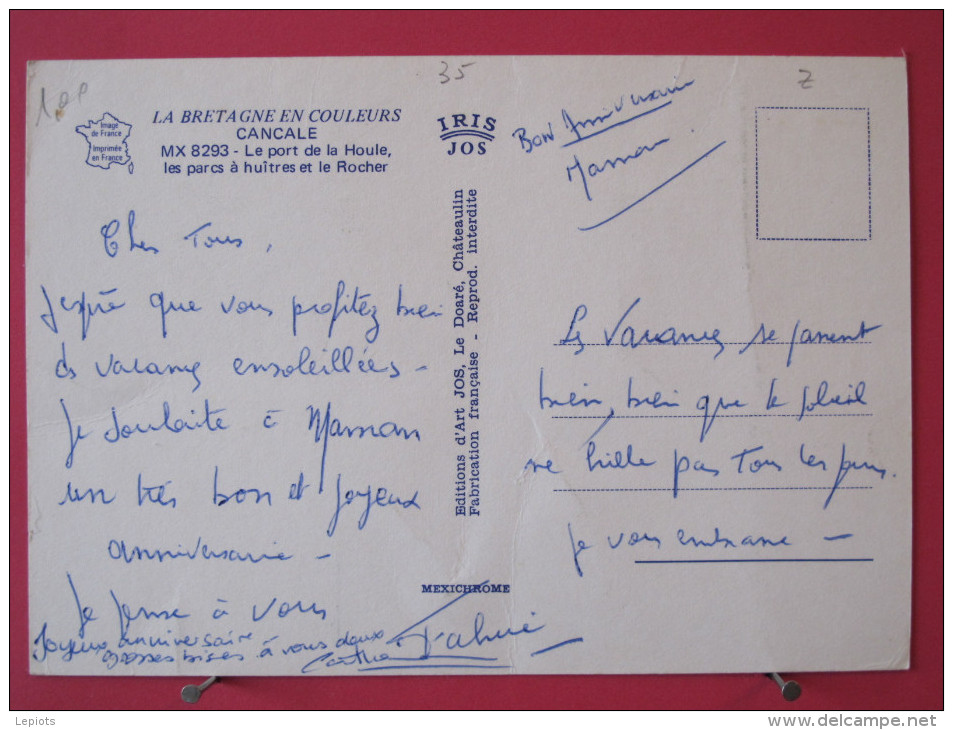 1,00
35
Z
Image
de France
Imprimée
en France
LA BRETAGNE EN COULEURS
CANCALE
MX 8293 - Le port de la Houle,
les parcs à huîtres et le Rocher
IRIS
JOS
Bon Anniversaire
Maman
Chers Tous,
J'espère que vous profitez bien
des vacances ensoleillées -
Je souhaite à Maman
un très bon et joyeux
anniversaire -
Je pense à vous
Joyeux anniversaire
grosses bises à vous deux
Editions d'Art JOS, Le Doaré, Châteaulin
Fabrication française - Reprod. interdite
MEXICHROME
Les Vacances se passent
bien, bien que le soleil
ne brille pas tous les jours.
Je vous embrasse -
Lepiots
www.delcampe.net